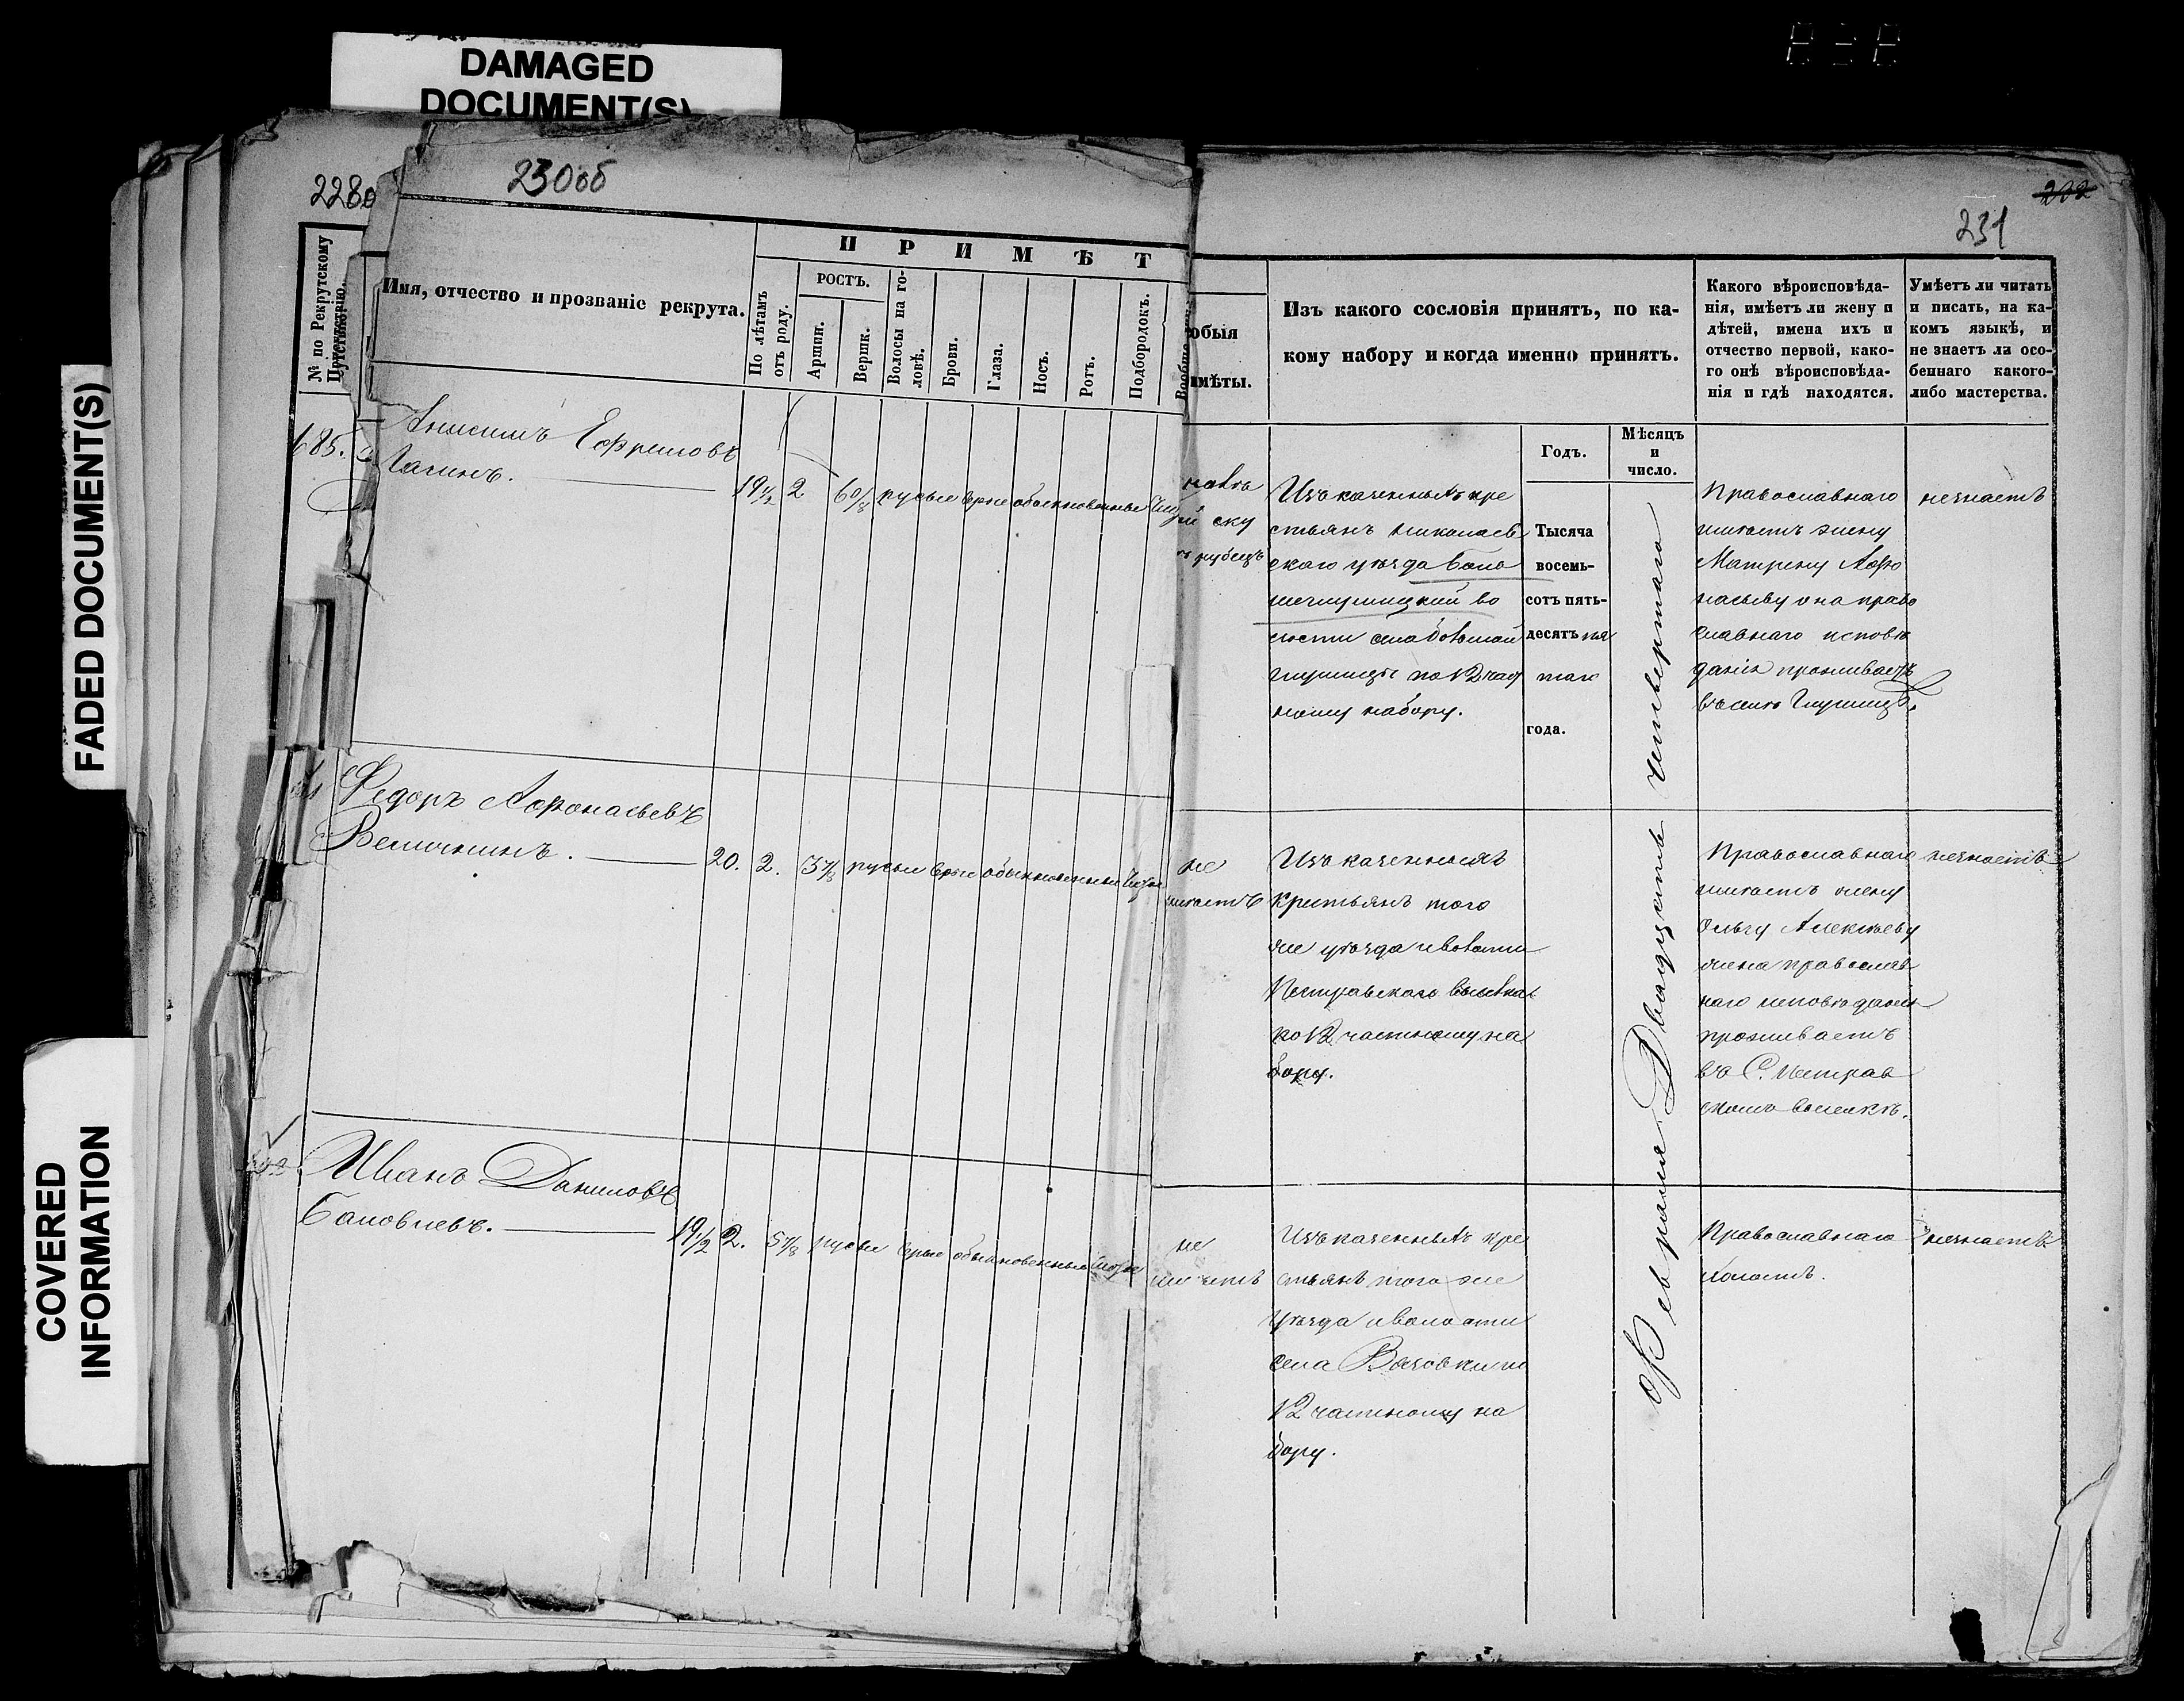 DAMAGED
DOCUMENT(S)
FADED DOCUMENT(S)
COVERED
INFORMATION
228о
230об
202
231
№ по Рекрутскому
Имя, отчество и прозваніе рекрута.
П Р И М Ѣ Т
По лѣтамъ
отъ роду.
РОСТЪ.
Аршин.
Вершк.
Волосы на го-
ловѣ.
Брови.
Глаза.
Носъ.
Ротъ.
Подбородокъ.
обыя
имѣты.
Изъ какого сословія принятъ, по ка-
кому набору и когда именно принятъ.
Какого вѣроисповѣда-
нія, имѣетъ ли жену и
дѣтей, имена ихъ и
отчество первой, како-
го онѣ вѣроисповѣда-
нія и гдѣ находятся.
Умѣетъ ли читать
и писать, на ка-
комъ языкѣ, и
не знаетъ ли осо-
беннаго какого-
либо мастерства.
Годъ.
Мѣсяцъ
и
число.
685.
Анисимъ Ефремовъ
19½ 2 6 0/8 русые сѣрые обыкновенные
ску
рубецъ
Изъ казенныхъ кре
стьянъ Николаев
скаго уѣзда Боль
шеглушицкой во
лости села Большой
Глушицы по 12 част
ному набору.
Тысяча
восемь-
сотъ пять-
десятъ пя
таго
года.
Февраля Двадцать четвертаго
Православнаго
имѣетъ жену
Матрену Афо
насьеву она право
славнаго исповѣ
данія проживаетъ
въ селѣ Глушицѣ.
незнаетъ
Федоръ Афонасьевъ
Величкинъ.
20. 2. 3 4/8 русые сѣрые обыкновенные
не
имѣетъ
Изъ казенныхъ
крестьянъ того
же уѣзда и волости
Пестравскаго выселка
по 12 частному на
бору.
Православнаго
имѣетъ жену
Ольгу Алексѣеву
она православ
наго исповѣданія
проживаетъ
въ С. Пестрав
скомъ выселкѣ.
незнаетъ
Иванъ Даниловъ
19½ 2. 5 4/8 русые сѣрые обыкновенные
не
имѣетъ
Изъ казенныхъ кре
стьянъ того же
уѣзда и волости
села Вязовки по
12 частному на
бору.
Православнаго
холостъ.
незнаетъ